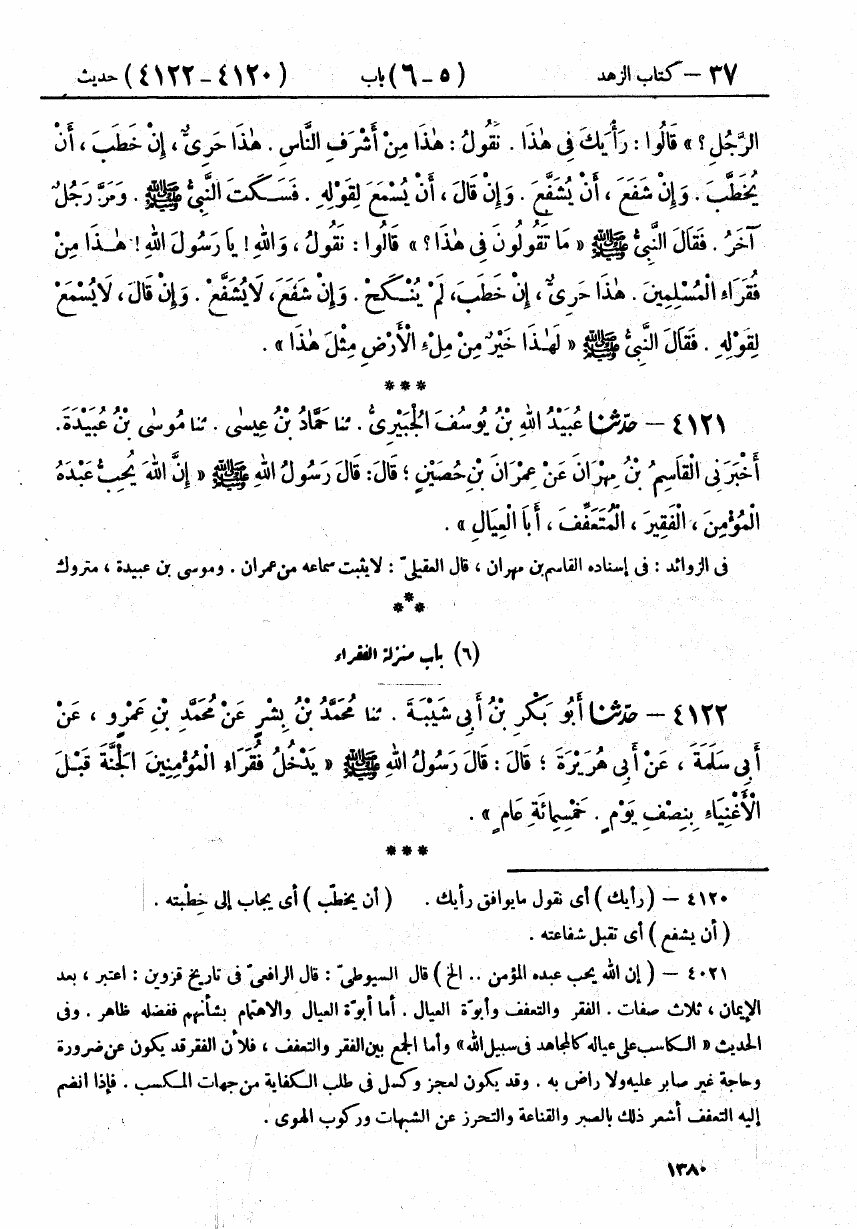 ٣٧ – كتاب الزهد (٥ – ٦) باب (٤١٢٠ – ٤١٢٢) حديث
الرَّجُلِ؟ » قَالُوا : رَأْيَكَ فِى هٰذَا . نَقُولُ : هٰذَا مِنْ أَشْرَفِ النَّاسِ . هٰذَا حَرِىٌّ ، إِنْ خَطَبَ ، أَنْ
يُخَطَّبَ . وَإِنْ شَفَعَ ، أَنْ يُشَفَّعَ . وَإِنْ قَالَ ، أَنْ يُسْمَعَ لِقَوْلِهِ . فَسَكَتَ النَّبِىُّ ﷺ . وَمَرَّ رَجُلٌ
آخَرُ . فَقَالَ النَّبِىُّ ﷺ « مَا تَقُولُونَ فِى هٰذَا ؟ » قَالُوا : نَقُولُ ، وَاللهِ ! يَا رَسُولَ اللهِ ! هٰذَا مِنْ
فُقَرَاءِ الْمُسْلِمِينَ . هٰذَا حَرِىٌّ ، إِنْ خَطَبَ ، لَمْ يُنْكَحْ . وَإِنْ شَفَعَ ، لَا يُشَفَّعْ . وَإِنْ قَالَ ، لَا يُسْمَعْ
لِقَوْلِهِ . فَقَالَ النَّبِىُّ ﷺ « لَهٰذَا خَيْرٌ مِنْ مِلْءِ الْأَرْضِ مِثْلَ هٰذَا » .
***
٤١٢١ – حدّثنا عُبَيْدُ اللهِ بْنُ يُوسُفَ الْجُبَيْرِىُّ . ثنا حَمَّادُ بْنُ عِيسٰى . ثنا مُوسٰى بْنُ عُبَيْدَةَ .
أَخْبَرَنِى الْقَاسِمُ بْنُ مِهْرَانَ عَنْ عِمْرَانَ بْنِ حُصَيْنٍ ؛ قَالَ : قَالَ رَسُولُ اللهِ ﷺ « إِنَّ اللهَ يُحِبُّ عَبْدَهُ
الْمُؤْمِنَ ، الْفَقِيرَ ، الْمُتَعَفِّفَ ، أَبَا الْعِيَالِ » .
فى الزوائد : فى إسناده القاسم بن مهران ، قال العقيلىّ : لا يثبت سماعه من عمران . وموسى بن عبيدة ، متروك
***
(٦) باب منزلة الفقراء
٤١٢٢ – حدّثنا أَبُو بَكْرِ بْنُ أَبِى شَيْبَةَ . ثنا مُحَمَّدُ بْنُ بِشْرٍ عَنْ مُحَمَّدِ بْنِ عَمْرٍو ، عَنْ
أَبِى سَلَمَةَ ، عَنْ أَبِى هُرَيْرَةَ ؛ قَالَ : قَالَ رَسُولُ اللهِ ﷺ « يَدْخُلُ فُقَرَاءُ الْمُؤْمِنِينَ الْجَنَّةَ قَبْلَ
الْأَغْنِيَاءِ بِنِصْفِ يَوْمٍ . خَمْسِمِائَةِ عَامٍ » .
***
٤١٢٠ – ( رأيك ) أى نقول ما يوافق رأيك . ( أن يخطّب ) أى يجاب إلى خِطْبته .
( أن يشفع ) أى تقبل شفاعته .
٤٠٢١ – ( إن الله يحب عبده المؤمن .. الخ ) قال السيوطىّ : قال الرافعىّ فى تاريخ قزوين : اعتبر ، بعد
الإيمان ، ثلاث صفات . الفقر والتعفف وأبوّة العيال . أما أبوّة العيال والاهتمام بشأنهم ففضله ظاهر . وفى
الحديث « الكاسب على عياله كالمجاهد فى سبيل الله » وأما الجمع بين الفقر والتعفف ، فلأن الفقر قد يكون عن ضرورة
وحاجة غير صابر عليه ولا راض به . وقد يكون لعجز وكسل فى طلب الكفاية من جهات المكسب . فإذا انضم
إليه التعفف أشعر ذلك بالصبر والقناعة والتحرز عن الشبهات وركوب الهوى .
١٣٨٠